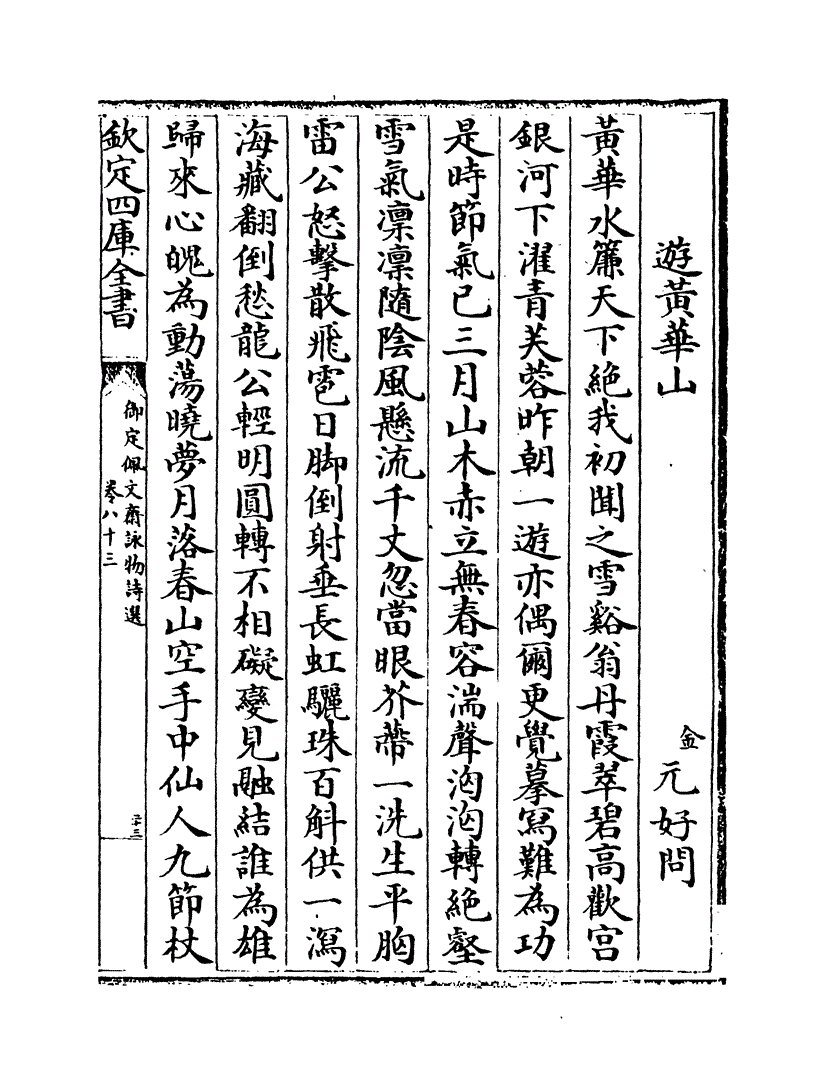 遊黃華山
金元好問
黃華水簾天下絶我初聞之雪谿翁丹霞翠碧高歡宫
銀河下濯青芙蓉昨朝一遊亦偶爾更覺摹寫難為功
是時節氣已三月山木赤立無春容湍聲洶洶轉絶壑
雪氣凛凛隨陰風懸流千丈忽當眼芥蔕一洗生平胸
雷公怒擊散飛雹日脚倒射垂長虹驪珠百斛供一瀉
海藏翻倒愁龍公輕明圓轉不相礙變見融結誰為雄
歸來心魄為動蕩曉夢月落春山空手中仙人九節杖
欽定四庫全書
御定佩文齋詠物詩選
卷八十三